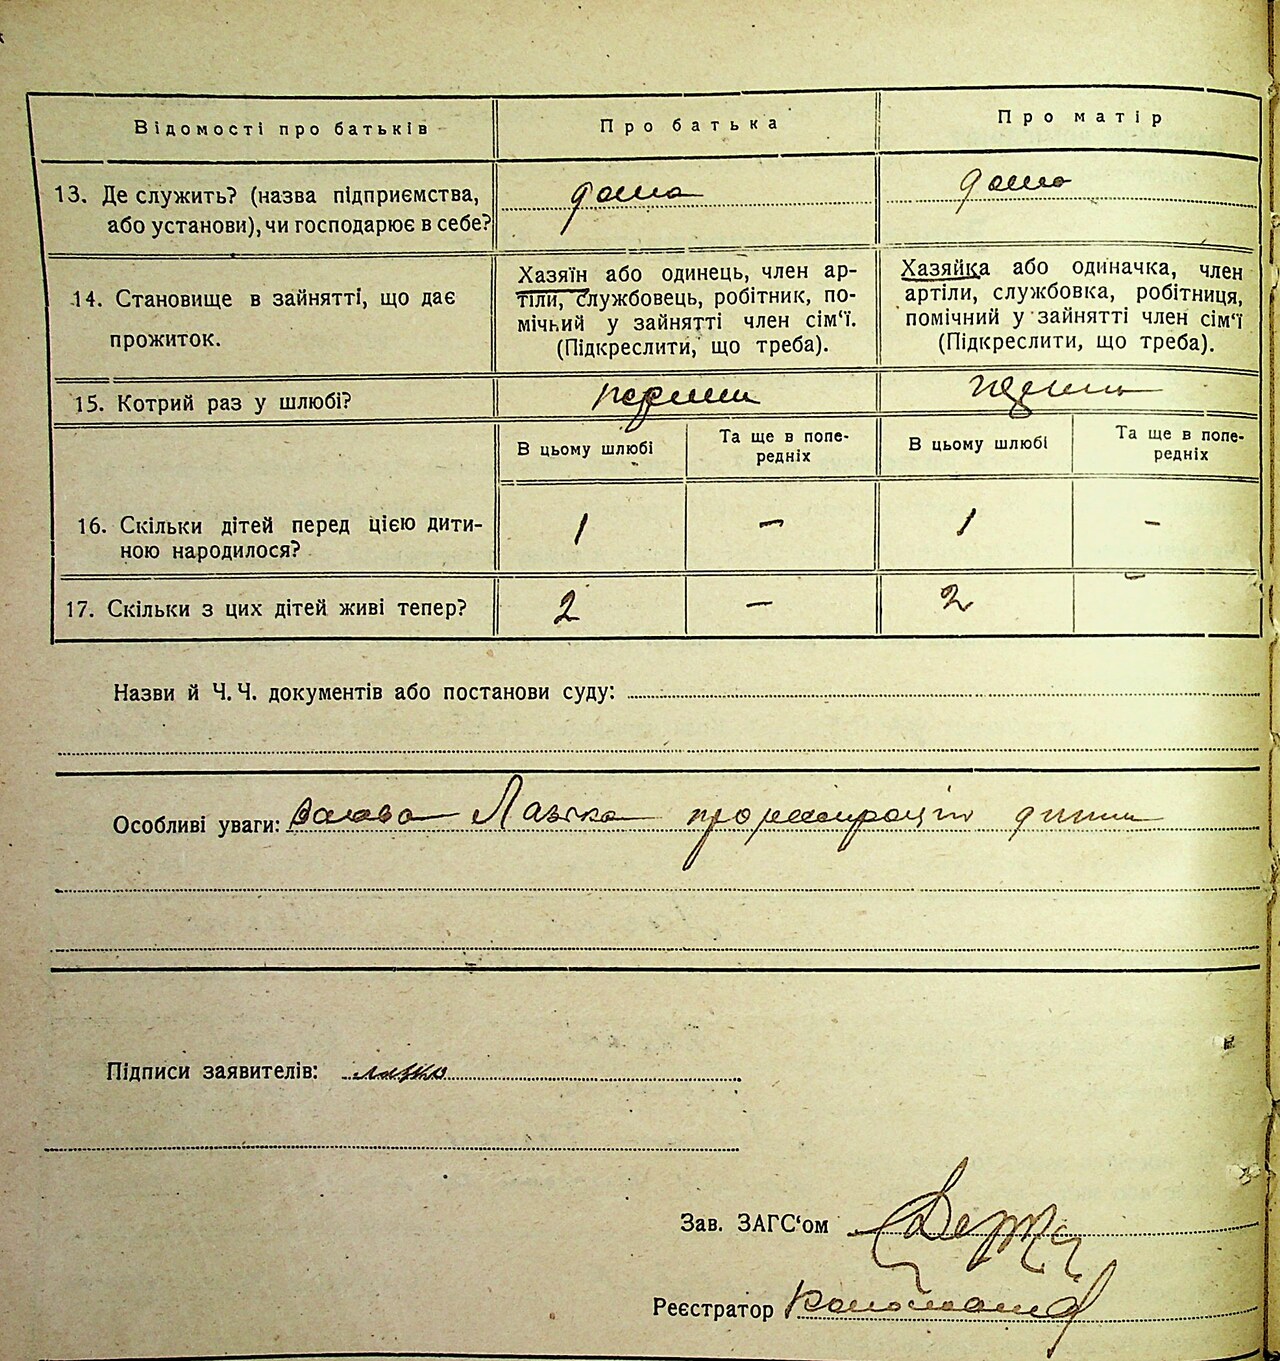 Відомості про батьків
Про батька
Про матір
13. Де служить? (назва підприємства,
або установи), чи господарює в себе?
дома
дома
14. Становище в зайнятті, що дає
прожиток.
Хазяїн або одинець, член ар-
тіли, службовець, робітник, по-
мічний у зайнятті член сім‘ї.
(Підкреслити, що треба).
Хазяйка або одиначка, член
артіли, службовка, робітниця,
помічний у зайнятті член сім‘ї
(Підкреслити, що треба).
15. Котрий раз у шлюбі?
перший
В цьому шлюбі
Та ще в попе-
редніх
В цьому шлюбі
Та ще в попе-
редніх
16. Скільки дітей перед цією дити-
ною народилося?
1 — 1 —
17. Скільки з цих дітей живі тепер?
2 — 2 —
Назви й Ч. Ч. документів або постанови суду:
Особливі уваги: Заява Лазька про реєстрацію дитини
Підписи заявителів: лазко
Зав. ЗАГС‘ом
Реєстратор